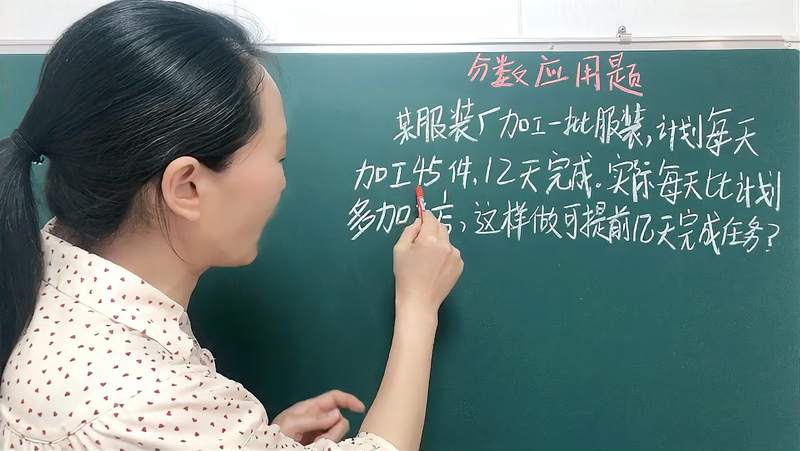 分数应用题
某服装厂加工一批服装,计划每天
加工45件,12天完成。实际每天比计划
多加工,这样做可提前几天完成任务?